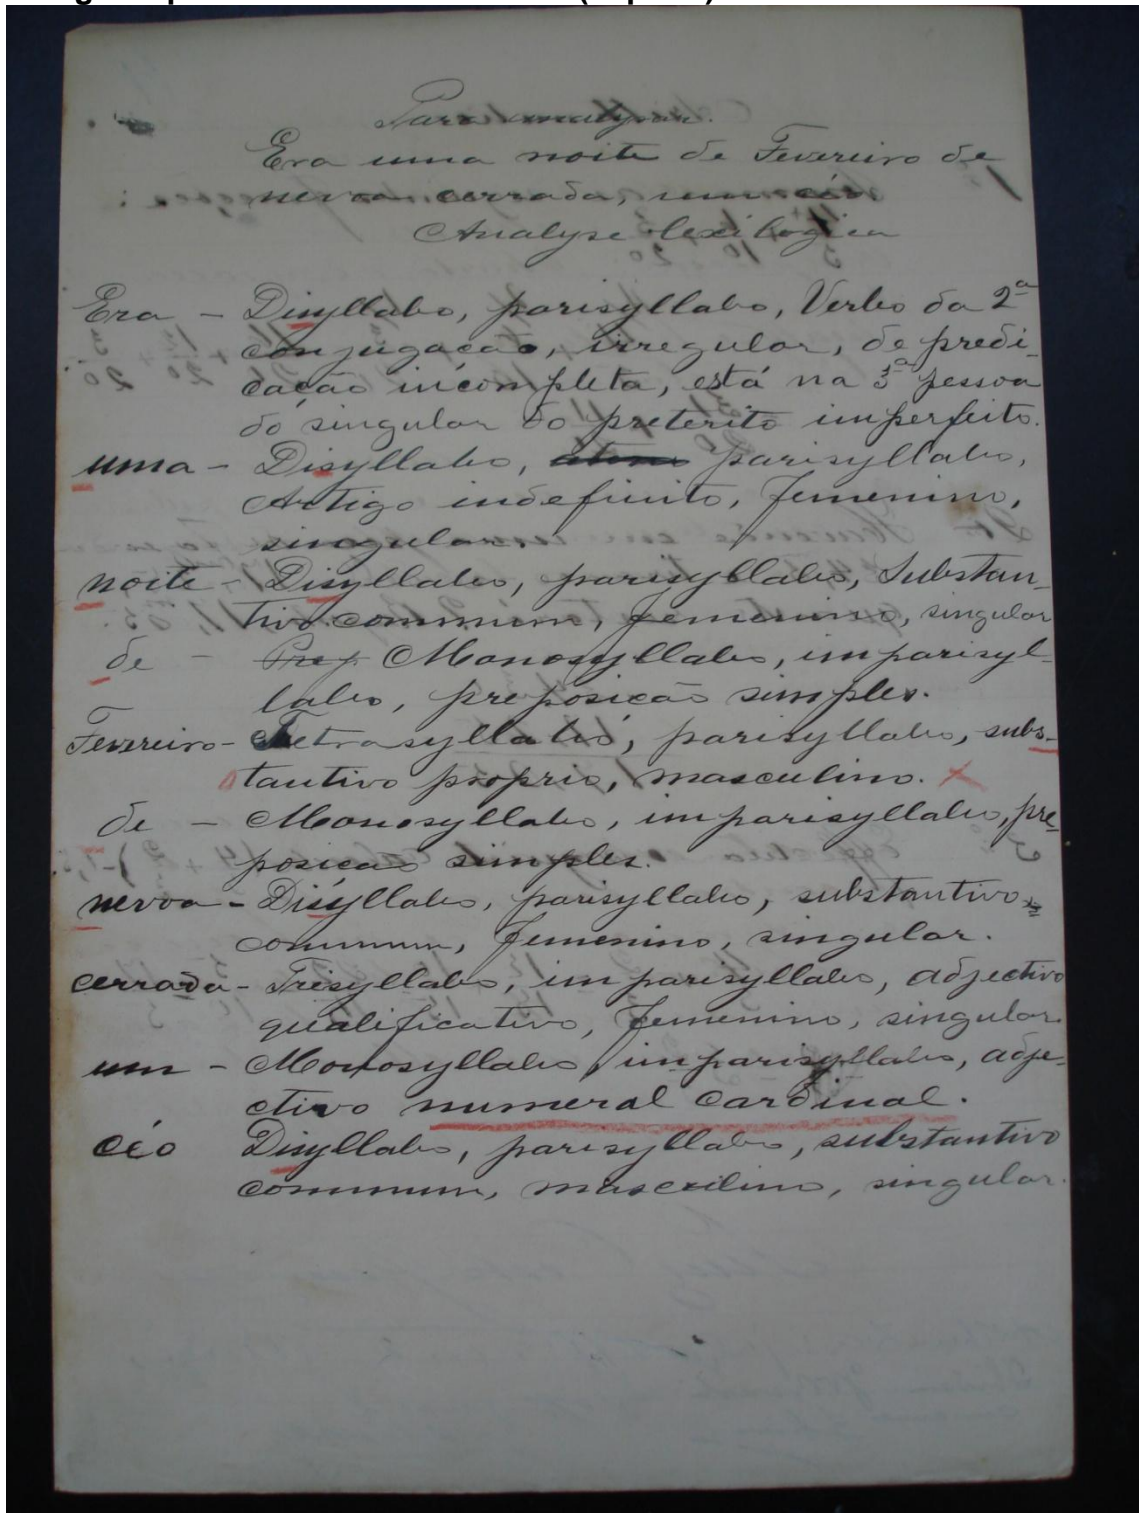 Para analysar.
Era uma noite de Fevereiro de
nevoa cerrada, num céo
Analyse lexilogica
Era - Disyllabo, parisyllabo, Verbo da 2ª
conjugação, irregular, de predi-
cação incompleta, está na 3ª pessoa
do singular do preterito imperfeito.
uma - Disyllabo, atono parisyllabo,
Artigo indefinito, femenino,
singular.
noite - Disyllabo, parisyllabo, Substan-
tivo commum, femenino, singular
de - Prep. Monosyllabo, imparisyl-
labo, preposição simples.
Fevereiro - Tetrasyllabo, parisyllabo, subs-
tantivo proprio, masculino. X
de - Monosyllabo, imparisyllabo, pre-
posicao simples.
nevoa - Disyllabo, parisyllabo, substantivo
commum, femenino, singular.
cerrada - Trisyllabo, imparisyllabo, adjectivo
qualificativo, femenino, singular.
um - Monosyllabo, imparisyllabo, adje-
ctivo numeral cardinal.
céo Disyllabo, parisyllabo, substantivo
commum, masculino, singular.